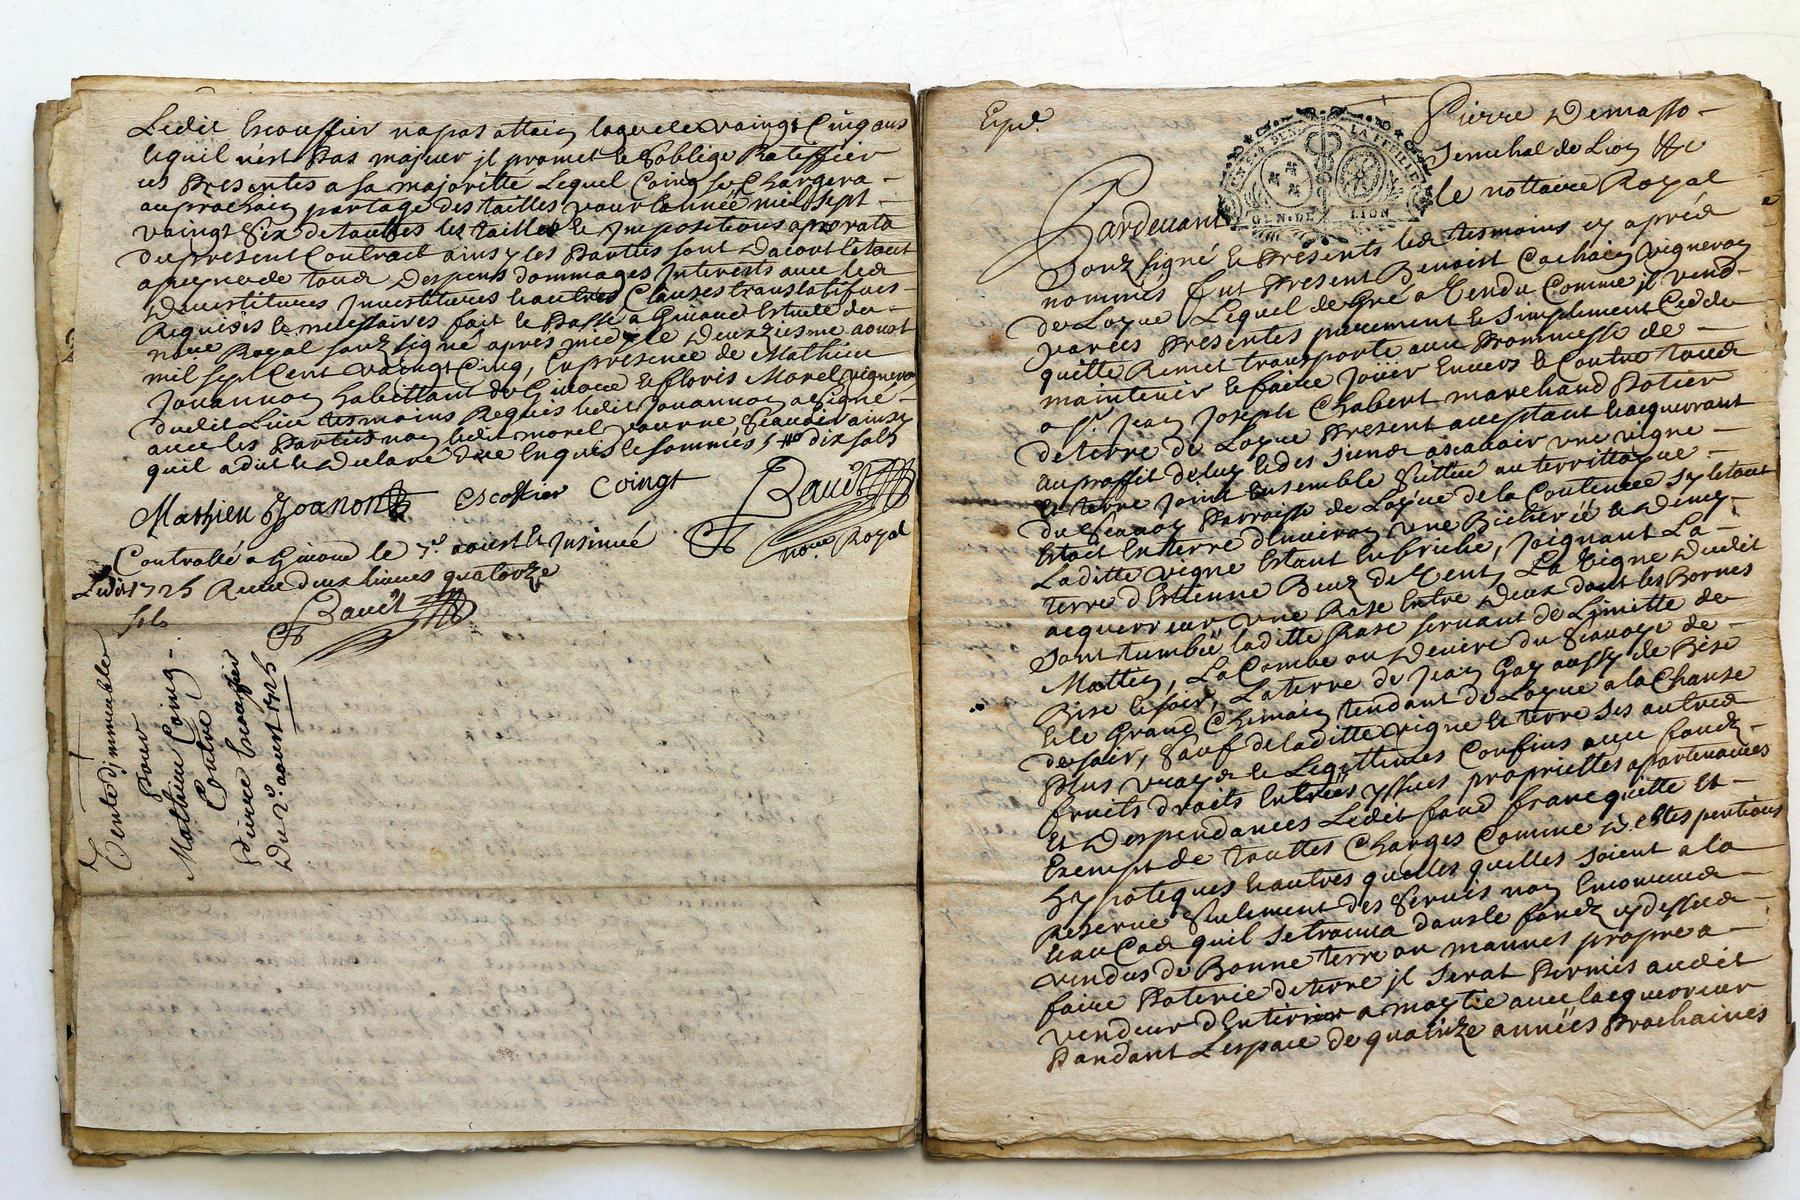 Ledit Escoffier na pas attain laage de vaingt Cinq ans
lequil n'est Pas majeur jl promet le soblige Rateffier
les Presentes a sa majoritté Lequel Coing se Chargera
au prochain partage des tailles pour lannée mil sept
vaingt Six de toutes les tailles le jmpositions a prorata
du present Contract ainsy les Parties sont Dacort le tout
a peyne de tous Despens dommages Interests avec les
Devestitures jnvestitures & autres Clauses translatifves
Requises le necessaires fait le Passé a Givord Estude du
nore Royal souz signé apres midy le Deuxziesme aoust
mil sept Cent vaingt Cinq, En presence de Mathieu
Jouannon habittant de Givord & floris Morel vigneron
dudit Lieu tesmoins Requis ledit Jouannon a signé
avec les Parties non ledit morel pour ne Scavoir ainsy
quil a dit le Declaré De ce Enquis le sommés, 5 # dix sols
Mathieu Joanon Escoffier Coingt Baudt
nore Royal
Controllé a Givord le 7e aoust le Jnsinué
Ledit 1725 Receu deux livres quatorze
sols Baudt
Vente d'jmmeuble
Pour
Mathieu Coing
Contre
Pierre Escoffier
Du 2e aoust 1725
Expd.
GEN. DE LION
Pierre Demasso
Senechal de Lion &c
Pardevant le nottaire Royal
Souz signé le Presents les tesmoins cy aprés
nommés fut Present Benoist Cachain vigneron
de Loyre Lequel de Gré a Vendu Comme jl Vend
par ces Presentes purement le Simplement Cedde
quitte Remet transporte avec Prommesse de
maintenir le faire Jouir Envers le Contre tous
a Sr. Jean Joseph Chabert marchand Potier
de terre de Loyre Present acceptant & acquerrant
au proffit de luy & des siens ascavoir une vigne
& terre joint Ensemble Sittué au territtoyre
du Scavoy Parroisse de Loyre de la Contenue Sy le tout
Estoit En terre d'Environ une Bicherée le Demy
Laditte vigne Estant En friche, joignant La
terre d'Estienne Beuz de Vent, La Vigne Dudit
acquerreur une Rase Entre Deux dont les Bornes
sont tumbé laditte Rase servant de Limitte de
Mattin, La Combe ou Deniere du Scavoye de
Bise & soir, La terre de Jean Gay aussy de Bise
& le Grand Chemain tendant de Loyre a la Chanse
de soir, Sauf de laditte vigne & terre ses autres
Plus vrays & Legittimes Confins avec fondz
fruits droits Entrées yssues proprietés apartenances
Et Despendances Ledit fond franc quitte Et
Exempt de touttes Charges Comme Debtes pentions
hypoteques & autres quelles quelles soient a la
Reserve Seulement des Servis noz Encourues
& au Cas quil se trouva dans le fondz cy dessus
vendus de Bonne terre ou mannes propre a
faire Poterie de terre jl serat Permis audit
vendeur d'En tirrer a moytié avec lacquerreur
Pandant Lespace de quainze années Prochaines